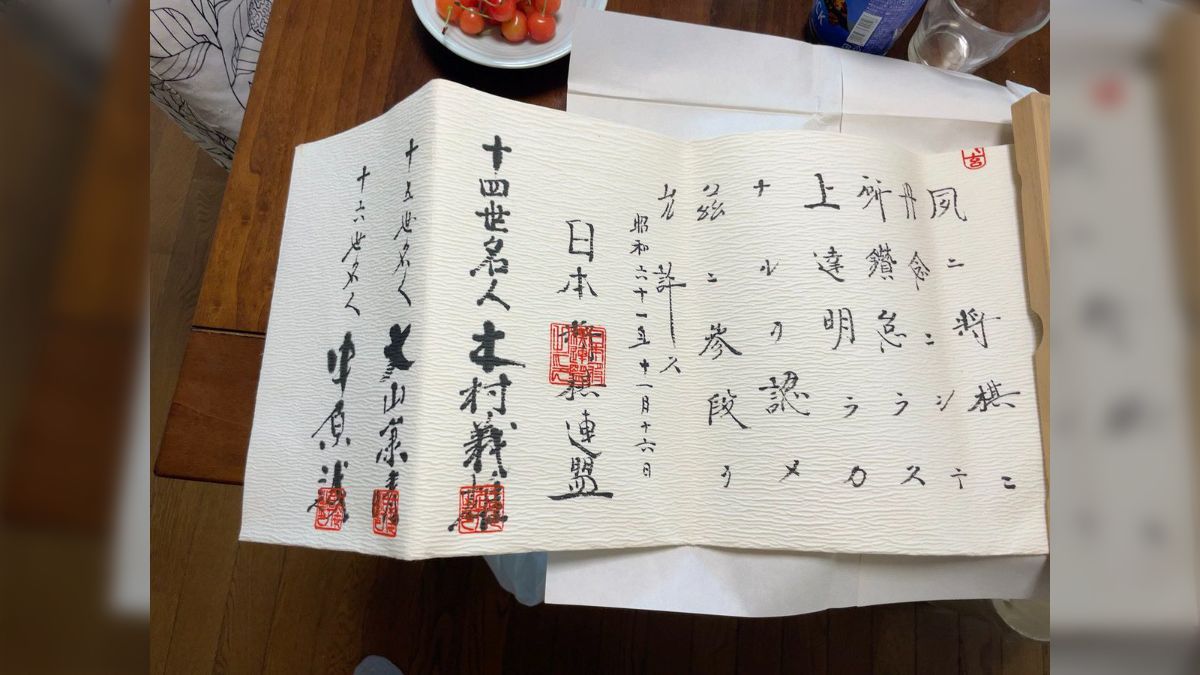 夙ニ将棋ニ
丹念ニシテ
研鑽怠ラス
上達明ラカ
ナルヲ認メ
茲ニ参段ヲ
允許ス
昭和六十一年十一月十六日
日本将棋連盟
十四世名人 木村義雄
十五世名人 大山康晴
十六世名人 中原誠